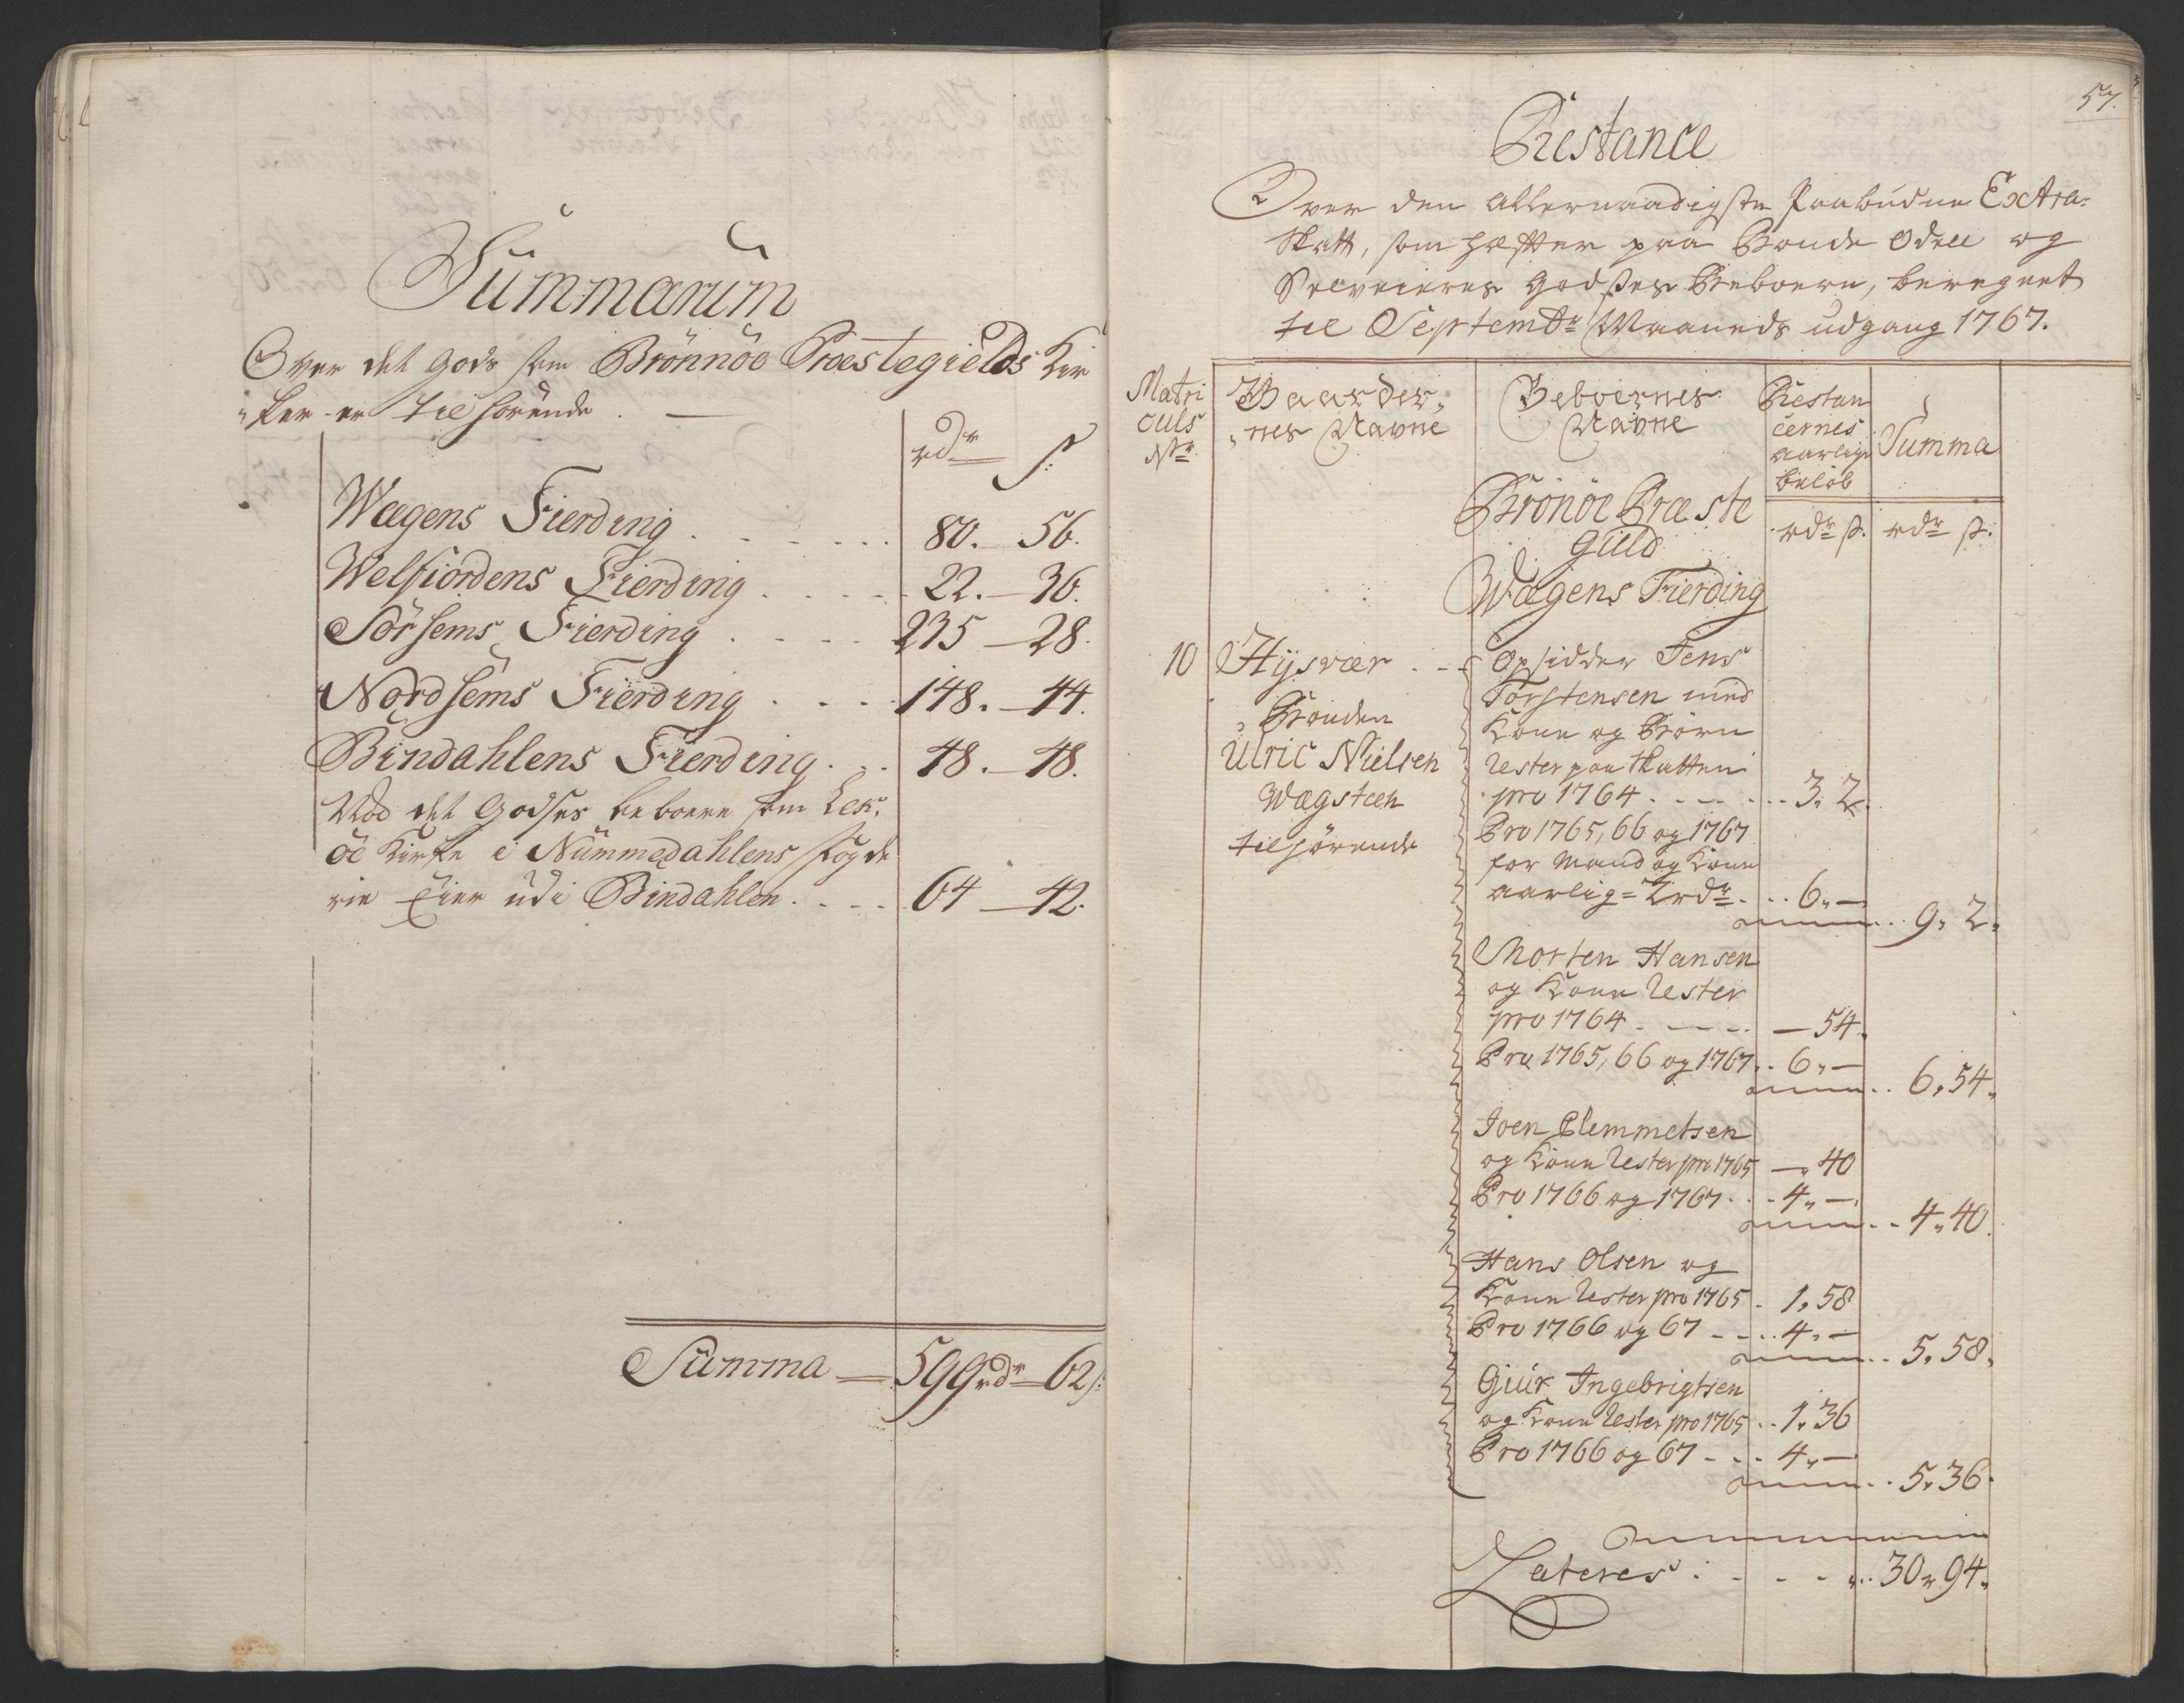 Summarum
Over det Gods som Brönnöe Præstegields Kir
„ker er tilhörende.
rdr ß:
Wægens Fierding . . . . . . 80. 56.
Welfiordens Fierding . . . . 22. 36.
Sörhems Fierding . . . . 235 28.
Nordhems Fierding . . . . 148. 44.
Bindahlens Fierding . . . 48. 48.
Ved det Godses beboere som Lek„
öe Kirke i Nummedahlens Fogde
rie Eier udi Bindahlen . . . . 64 42.
Summa 599 rdr 62 ß:
57.
Restance
Over den allernaadigste paabudne Extra-
Skatt, som hefter paa Bonde Odell og
Selveieres Godses Beboere, beregnet
til Septembr Maaneds udgang 1767.
Matri
culs
Nr
Gaarder„
„nes Navne
Beboernes
Navne
Restan
cernes
aarlige
beløb
Summa
rdr ß. rdr ß.
Brönöe Præste
Gield
Wægens Fierding
10 Hysvær . . . Opsidder Jens
Torstensen med
Kone og Börn
Rester paa Skatten
pro 1764 . . . . . . . 3. 2.
Pro 1765, 66 og 1767
for Mand og Kone
aarlig 2 rdr . . . 6. —
. . 9. 2.
Bonden
Ulric Nielsen
Wægsteen
tilhörende
Morten Hansen
og Kone Rester
pro 1764 . . . . — 54.
Pro 1765, 66 og 1767 . . 6. —
. . 6. 54.
Joen Clemmetsen
og Kone Rester pro 1765 — 40
Pro 1766 og 1767 . . . 4. —
. . 4. 40.
Hans Olsen og
Kone Rester pro 1765 . 1. 58
Pro 1766 og 67 . . . . 4. —
. . 5. 58.
Giür Ingebrigtsen
og Kone Rester pro 1765 . . 1. 36
Pro 1766 og 67 . . . 4. —
. . 5. 36.
Lateres : . . . . . 30. 94.